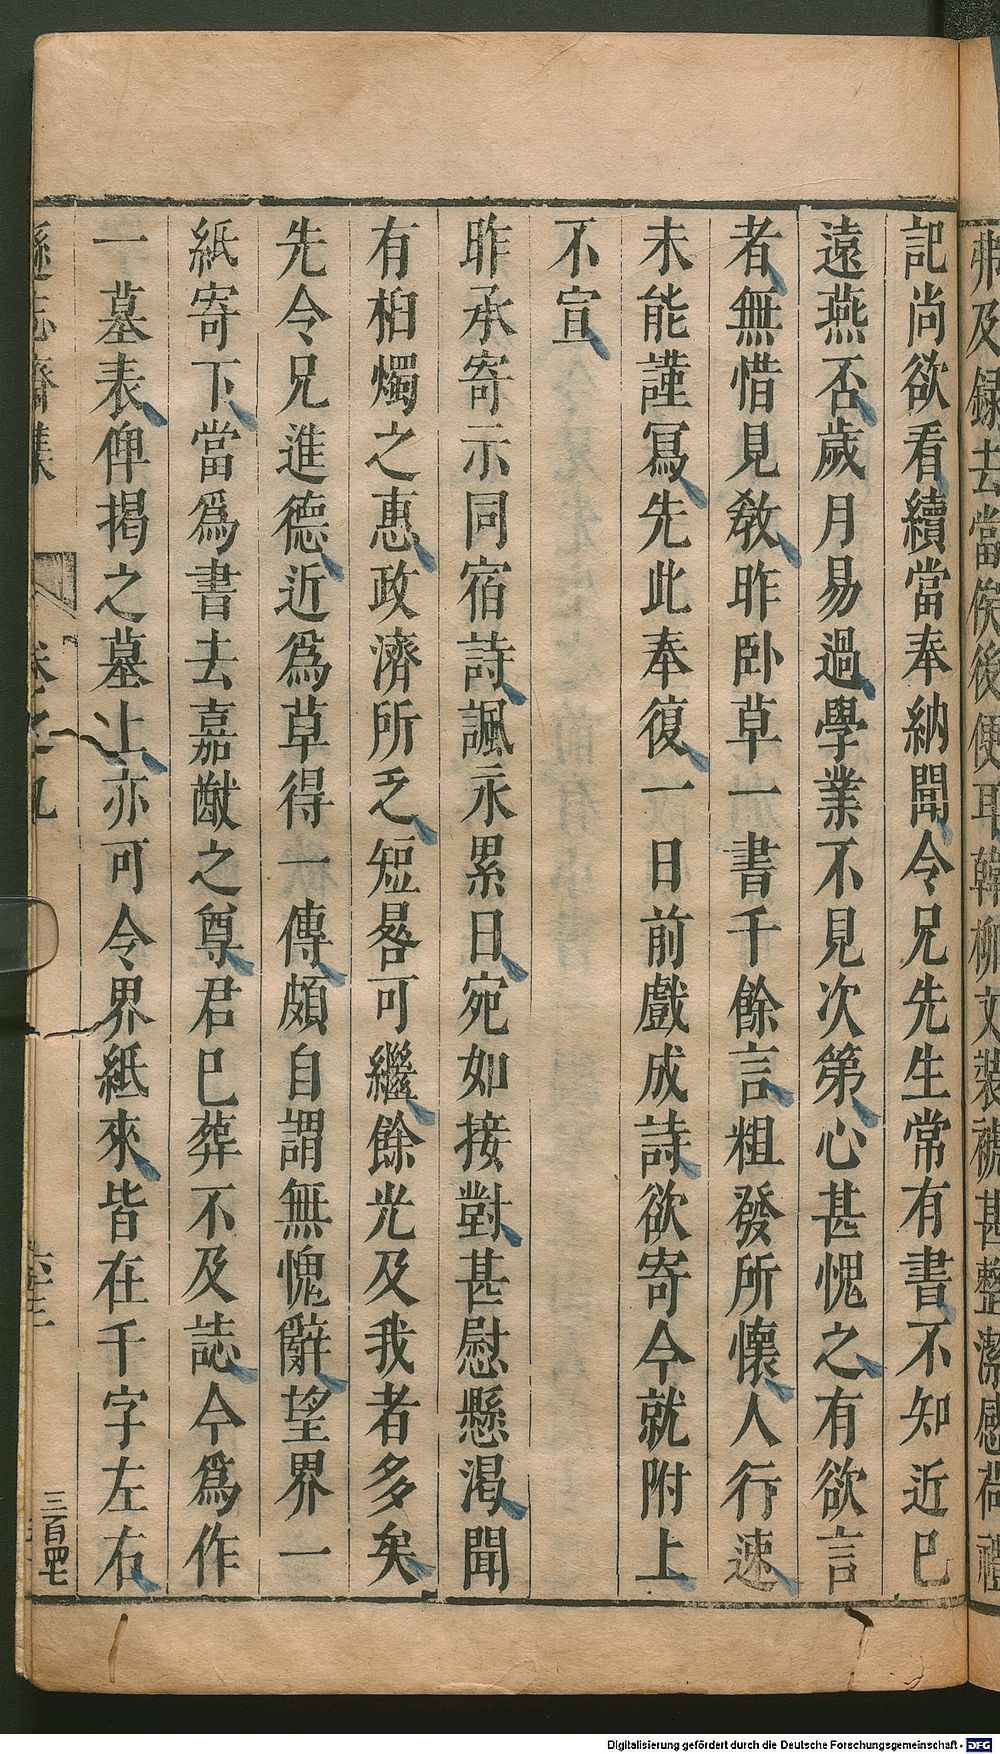 弗及録去當俟後便耳韓柳文裝褫甚整潔感荷禮
記尚欲看續當奉納聞令兄先生常有書不知近已
遠燕否歲月易過學業不見次第心甚愧之有欲言
者無惜見教昨卧草一書千餘言粗發所懷人行速
未能謹冩先此奉復一日前戲成詩欲寄今就附上
不宣
昨承寄示同宿詩諷永累日宛如接對甚慰懸渇聞
有桕燭之惠政濟所乏短晷可繼餘光及我者多矣
先令兄進德近爲草得一傳頗自謂無愧辭望界一
紙寄下當爲書去嘉猷之尊君已葬不及誌今爲作
一墓表俾揭之墓上亦可令界紙來皆在千字左右
遜志齋集
卷之九
三百四七
Digitalisierung gefördert durch die Deutsche Forschungsgemeinschaft - DFG